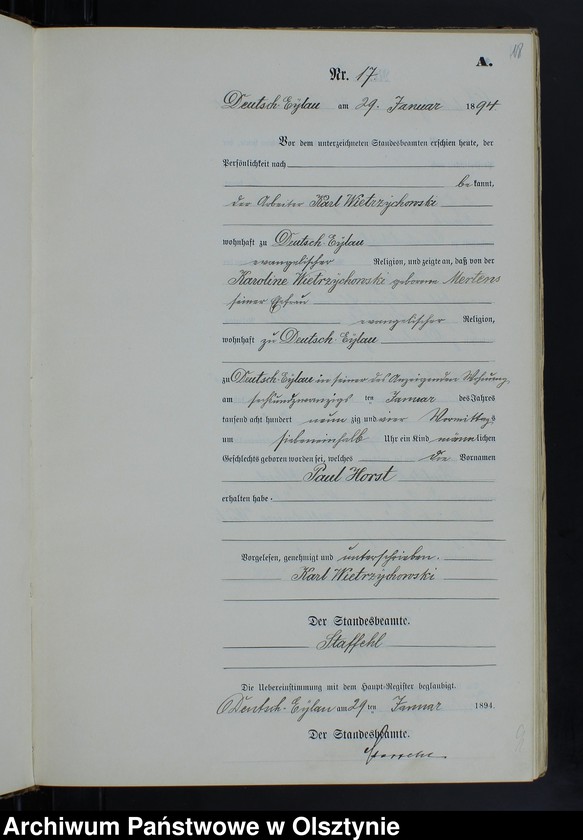 18
A.
Nr. 17
Deutsch-Eylau am 29. Januar 1894
Vor dem unterzeichneten Standesbeamten erschien heute, der
Persönlichkeit nach
bekannt,
der Arbeiter Karl Wietrzychowski
wohnhaft zu Deutsch-Eylau
evangelischer Religion, und zeigte an, daß von der
Karoline Wietrzychowski geborenen Mertens
seiner Ehefrau
evangelischer Religion,
wohnhaft zu Deutsch-Eylau
zu Deutsch-Eylau in seiner des Anzeigenden Wohnung,
am sechsundzwanzigsten Januar des Jahres
tausend acht hundert neunzig und vier Vormittags
um siebeneinhalb Uhr ein Kind männlichen
Geschlechts geboren worden sei, welches die Vornamen
Paul Horst
erhalten habe.
Vorgelesen, genehmigt und unterschrieben.
Karl Wietrzychowski
Der Standesbeamte.
Staffehl
Die Uebereinstimmung mit dem Haupt-Register beglaubigt.
Deutsch-Eylau am 29ten Januar 1894.
Der Standesbeamte.
Archiwum Państwowe w Olsztynie